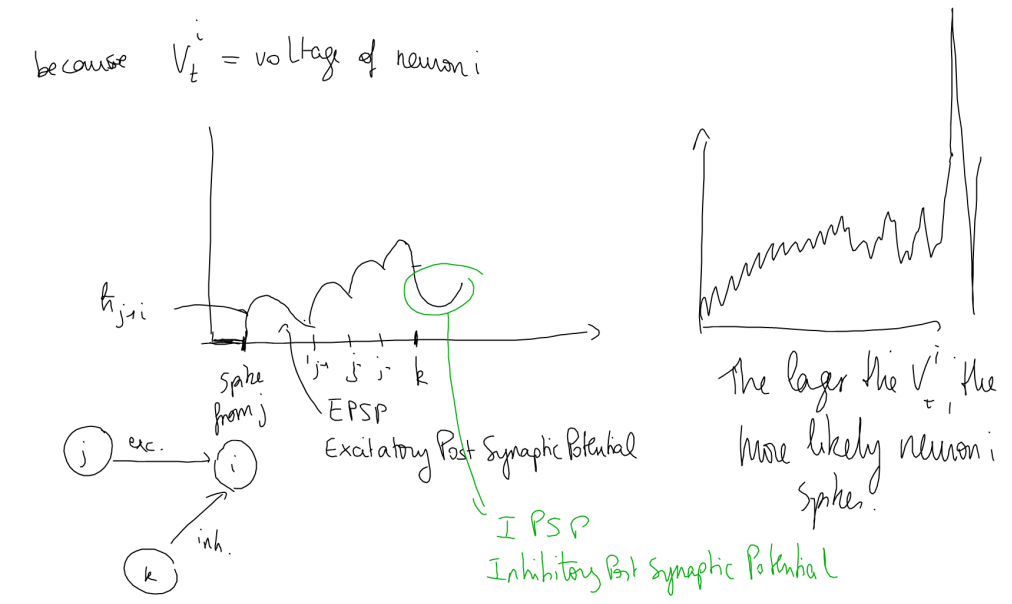 because V_t^i = voltage of neuron i
h_{j→i}
j j j k
spike
from j
EPSP
Excitatory Post Synaptic Potential
j exc. i
inh.
k
IPSP
Inhibitory Post Synaptic Potential
The lager the V_t^i, the
more likely neuron i
spikes.